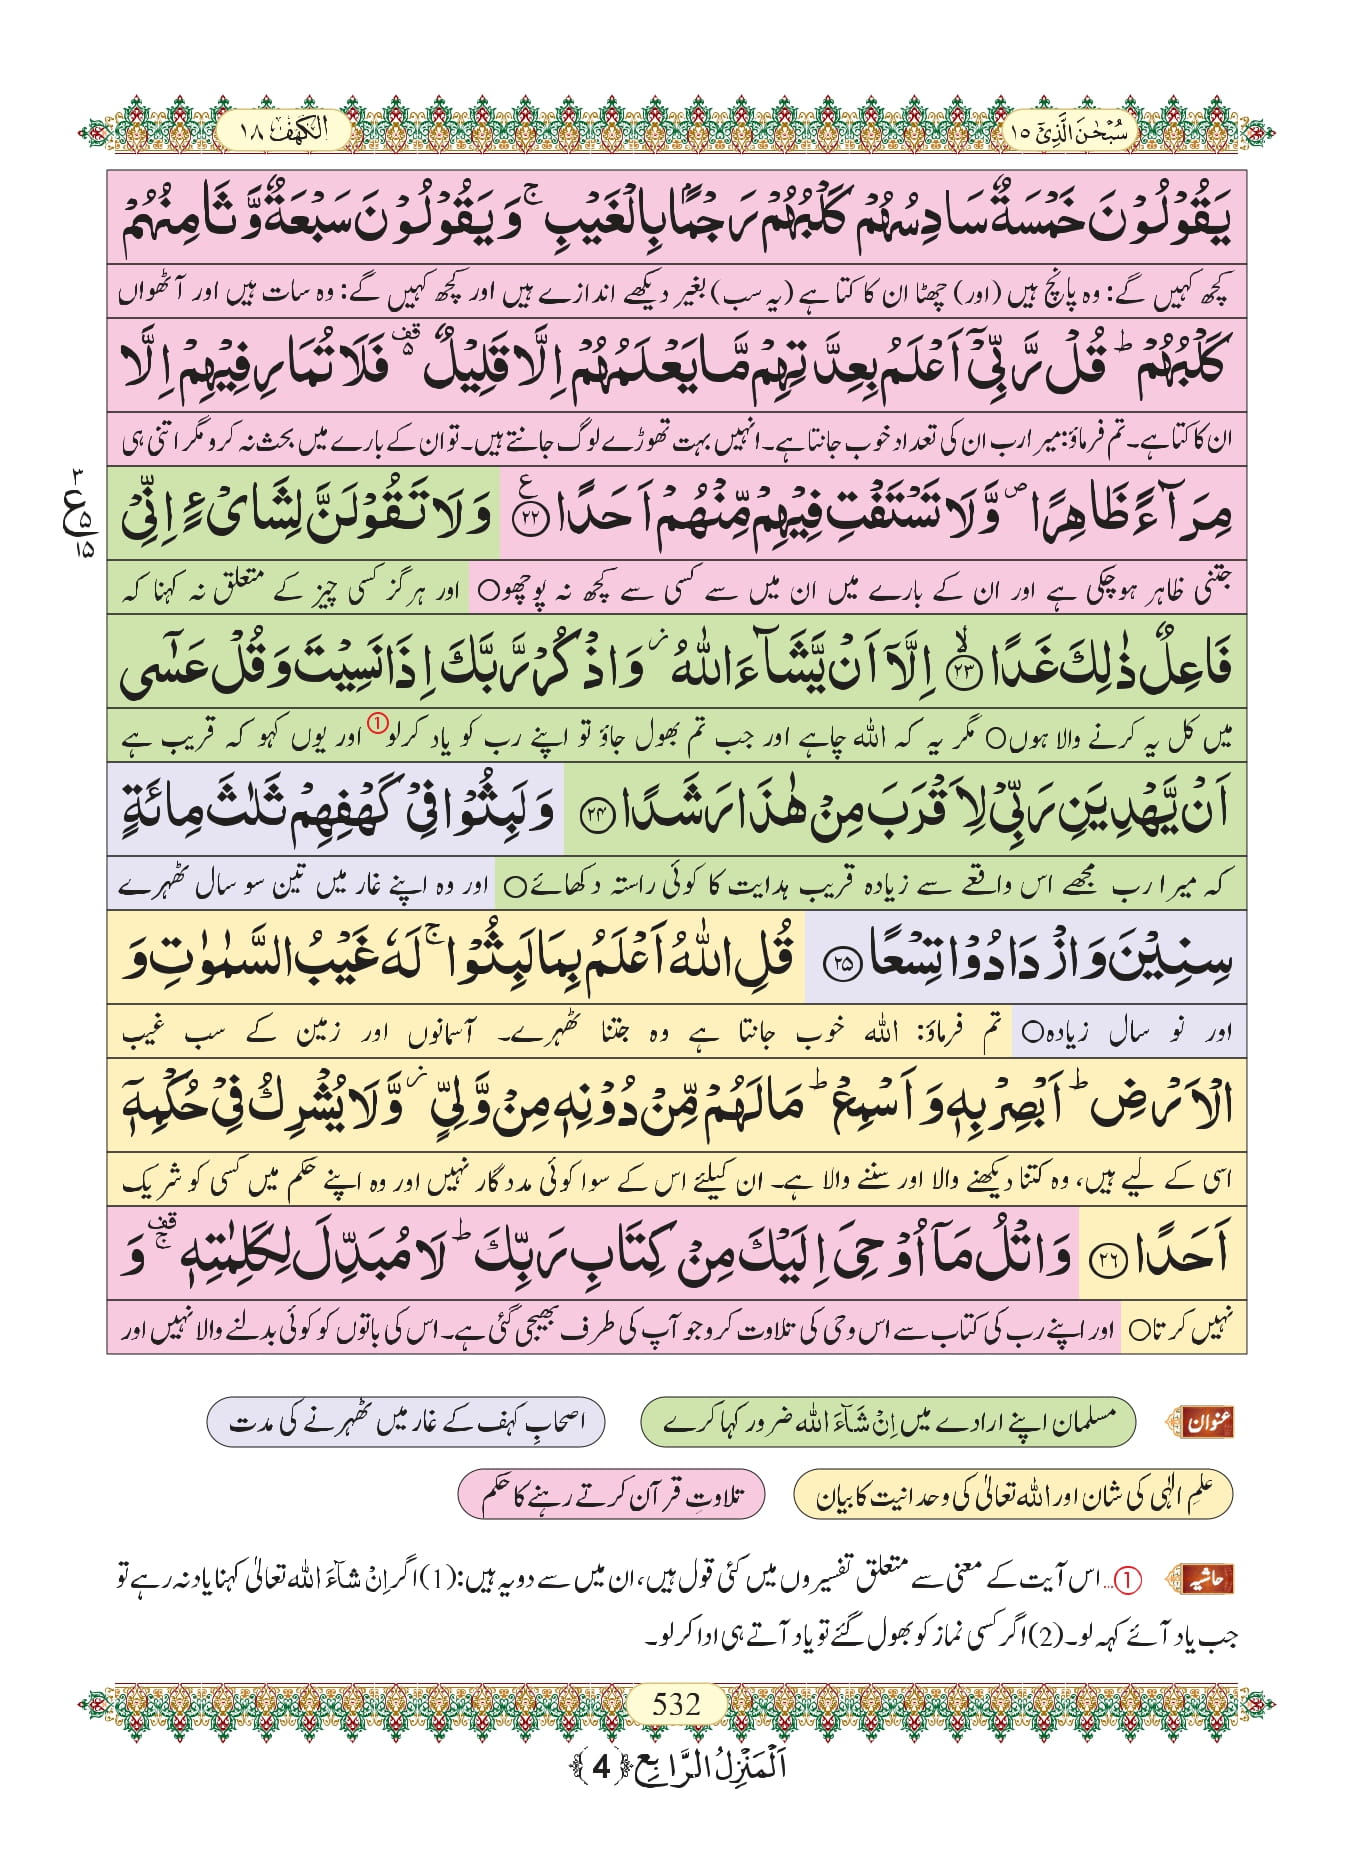 سُبْحٰنَ الَّذِیْۤ ١٥
الکھف ١٨
یَقُوْلُوْنَ خَمْسَةٌ سَادِسُهُمْ كَلْبُهُمْ رَجْمًۢا بِالْغَیْبِۚ وَ یَقُوْلُوْنَ سَبْعَةٌ وَّ ثَامِنُهُمْ
کچھ کہیں گے: وہ پانچ ہیں (اور) چھٹا ان کا کتا ہے (یہ سب) بغیر دیکھے اندازے ہیں اور کچھ کہیں گے: وہ سات ہیں اور آٹھواں
كَلْبُهُمْؕ قُلْ رَّبِّیْۤ اَعْلَمُ بِعِدَّتِهِمْ مَّا یَعْلَمُهُمْ اِلَّا قَلِیْلٌ ﲕ قف فَلَا تُمَارِ فِیْهِمْ اِلَّا
ان کا کتا ہے۔ تم فرماؤ: میرا رب ان کی تعداد خوب جانتا ہے۔ انہیں بہت تھوڑے لوگ جانتے ہیں۔ تو ان کے بارے میں بحث نہ کرو مگر اتنی ہی
مِرَآءً ظَاهِرًا۪ وَّ لَا تَسْتَفْتِ فِیْهِمْ مِّنْهُمْ اَحَدًا ع ﴿۲۲﴾ وَ لَا تَقُوْلَنَّ لِشَایْءٍ اِنِّیْ
٣ ع ٥ ١٥
جتنی ظاہر ہوچکی ہے اور ان کے بارے میں ان میں سے کسی سے کچھ نہ پوچھو○ اور ہرگز کسی چیز کے متعلق نہ کہنا کہ
فَاعِلٌ ذٰلِكَ غَدًاۙ ﴿۲۳﴾ اِلَّاۤ اَنْ یَّشَآءَ اللّٰهُ ز وَ اذْكُرْ رَّبَّكَ اِذَا نَسِیْتَ وَ قُلْ عَسٰۤى
میں کل یہ کرنے والا ہوں○ مگر یہ کہ اللہ چاہے اور جب تم بھول جاؤ تو اپنے رب کو یاد کرلو① اور یوں کہو کہ قریب ہے
اَنْ یَّهْدِیَنِ رَبِّیْ لِاَقْرَبَ مِنْ هٰذَا رَشَدًا ﴿۲۴﴾ وَ لَبِثُوْا فِیْ كَهْفِهِمْ ثَلٰثَ مِائَةٍ
کہ میرا رب مجھے اس واقعے سے زیادہ قریب ہدایت کا کوئی راستہ دکھائے○ اور وہ اپنے غار میں تین سو سال ٹھہرے
سِنِیْنَ وَ ازْدَادُوْا تِسْعًا ﴿۲۵﴾ قُلِ اللّٰهُ اَعْلَمُ بِمَا لَبِثُوْاۚ لَهٗ غَیْبُ السَّمٰوٰتِ وَ
اور نو سال زیادہ○ تم فرماؤ: اللہ خوب جانتا ہے وہ جتنا ٹھہرے۔ آسمانوں اور زمین کے سب غیب
الْاَرْضِؕ اَبْصِرْ بِهٖ وَ اَسْمِعْؕ مَا لَهُمْ مِّنْ دُوْنِهٖ مِنْ وَّلِیٍّ ز وَّ لَا یُشْرِكُ فِیْ حُكْمِهٖۤ
اسی کے لیے ہیں، وہ کتنا دیکھنے والا اور سننے والا ہے۔ ان کیلئے اس کے سوا کوئی مددگار نہیں اور وہ اپنے حکم میں کسی کو شریک
اَحَدًا ﴿۲۶﴾ وَ اتْلُ مَاۤ اُوْحِیَ اِلَیْكَ مِنْ كِتَابِ رَبِّكَؕ لَا مُبَدِّلَ لِكَلِمٰتِهٖۚ قف وَ
نہیں کرتا○ اور اپنے رب کی کتاب سے اس وحی کی تلاوت کرو جو آپ کی طرف بھیجی گئی ہے۔ اس کی باتوں کو کوئی بدلنے والا نہیں اور
عنوان مسلمان اپنے ارادے میں اِنْ شَآءَ اللہ ضرور کہا کرے اصحابِ کہف کے غار میں ٹھہرنے کی مدت
علمِ الٰہی کی شان اور اللہ تعالیٰ کی وحدانیت کا بیان تلاوتِ قرآن کرتے رہنے کا حکم
حاشیہ ①... اس آیت کے معنی سے متعلق تفسیروں میں کئی قول ہیں، ان میں سے دو یہ ہیں: (1) اگر اِنْ شَآءَ اللہ تعالیٰ کہنا یاد نہ رہے تو
جب یاد آئے کہہ لو۔ (2) اگر کسی نماز کو بھول گئے تو یاد آتے ہی ادا کر لو۔
532
اَلْمَنْزِلُ الرَّابِعُ ﴿4﴾